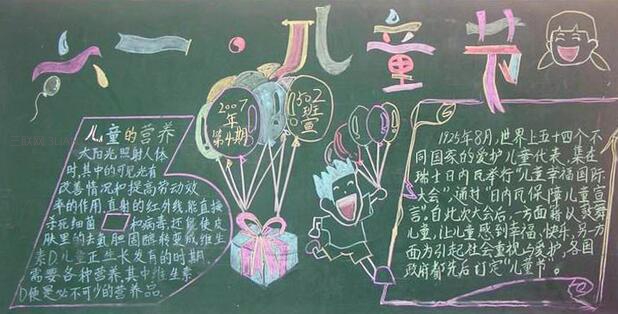 六一·儿童节
2007
年
第4期
1502
班
宣
儿童的营养
太阳光照射人体
时,其中的可见光有
改善情况和提高劳动效
率的作用,直射的红外线,能直接
杀死细菌 和病毒,还能使皮
肤里的去氧胆固醇转变成维生
素D.儿童正生长发育的时期
需要各种营养.其中维生素
D便是必不可少的营养品.
1925年8月,世界上五十四个不
同国家的爱护儿童代表,集在
瑞士日内瓦举行"儿童幸福国际
大会",通过"日内瓦保障儿童宣
言"自此次大会后,一方面藉以鼓舞
儿童,让儿童感到幸福,快乐,另一方
面为引起社会重视与爱护,各国
政府都先后订定"儿童节".